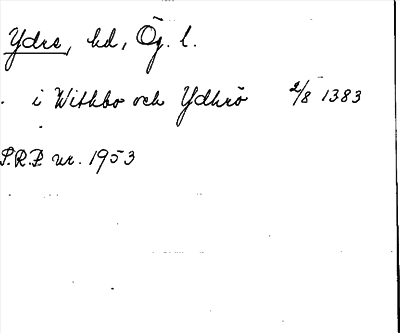 Ydre, hd, Ög. l.
i Withbo och Ydhrö 2/8 1383
S.R.P. nr. 1953